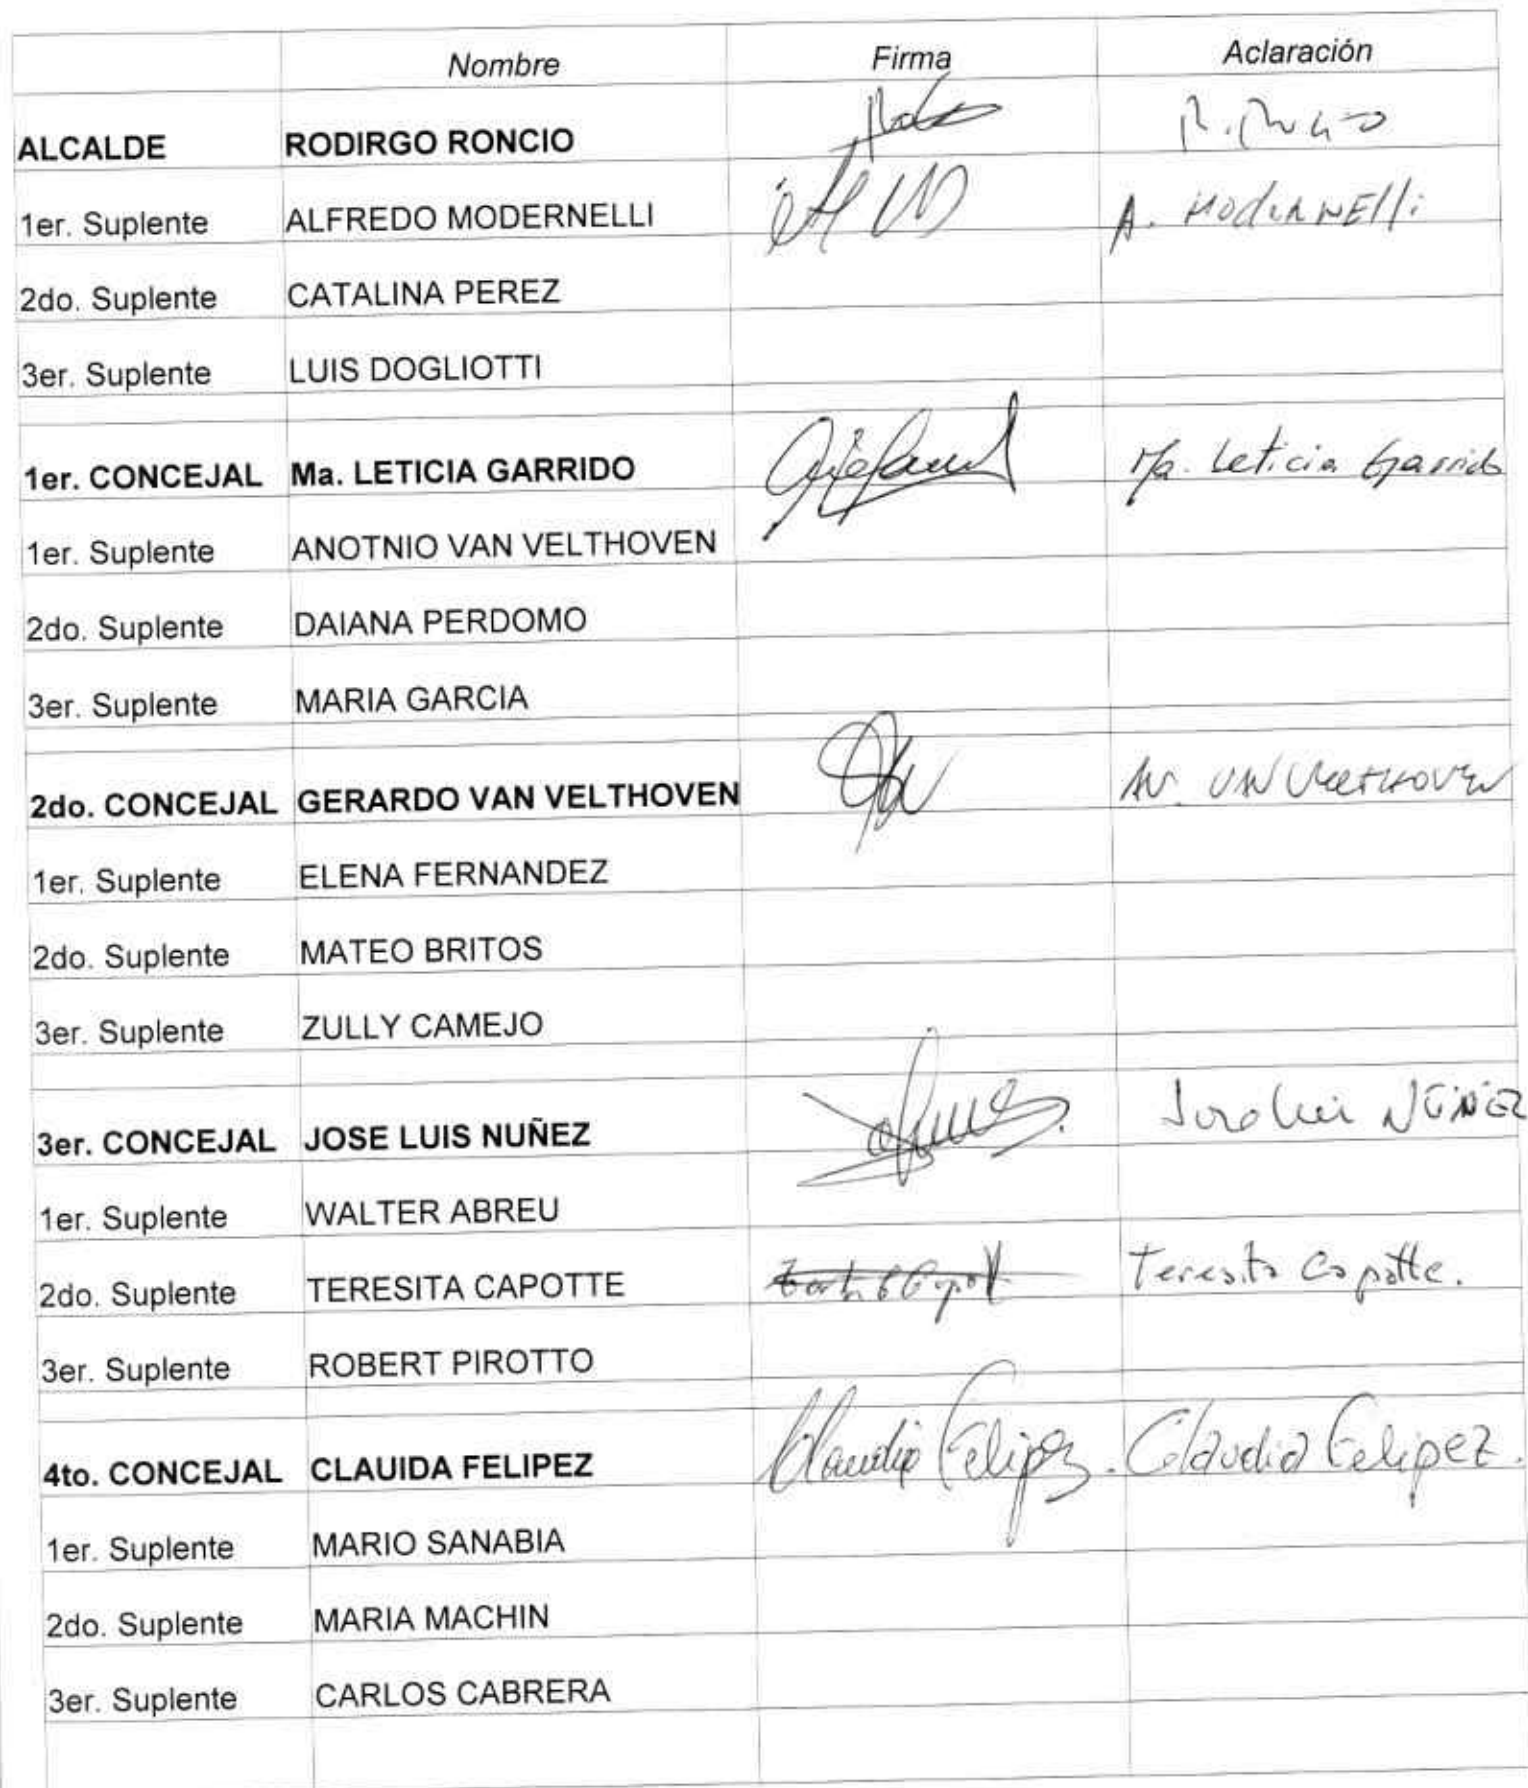 Nombre Firma Aclaración
ALCALDE RODIRGO RONCIO
1er. Suplente ALFREDO MODERNELLI A. Modernelli
2do. Suplente CATALINA PEREZ
3er. Suplente LUIS DOGLIOTTI
1er. CONCEJAL Ma. LETICIA GARRIDO Ma. Leticia Garrido
1er. Suplente ANOTNIO VAN VELTHOVEN
2do. Suplente DAIANA PERDOMO
3er. Suplente MARIA GARCIA
2do. CONCEJAL GERARDO VAN VELTHOVEN VAN VELTHOVEN
1er. Suplente ELENA FERNANDEZ
2do. Suplente MATEO BRITOS
3er. Suplente ZULLY CAMEJO
3er. CONCEJAL JOSE LUIS NUÑEZ NÚÑEZ
1er. Suplente WALTER ABREU
2do. Suplente TERESITA CAPOTTE Teresita Capotte.
3er. Suplente ROBERT PIROTTO
4to. CONCEJAL CLAUIDA FELIPEZ Claudia Felipez. Claudia Felipez.
1er. Suplente MARIO SANABIA
2do. Suplente MARIA MACHIN
3er. Suplente CARLOS CABRERA